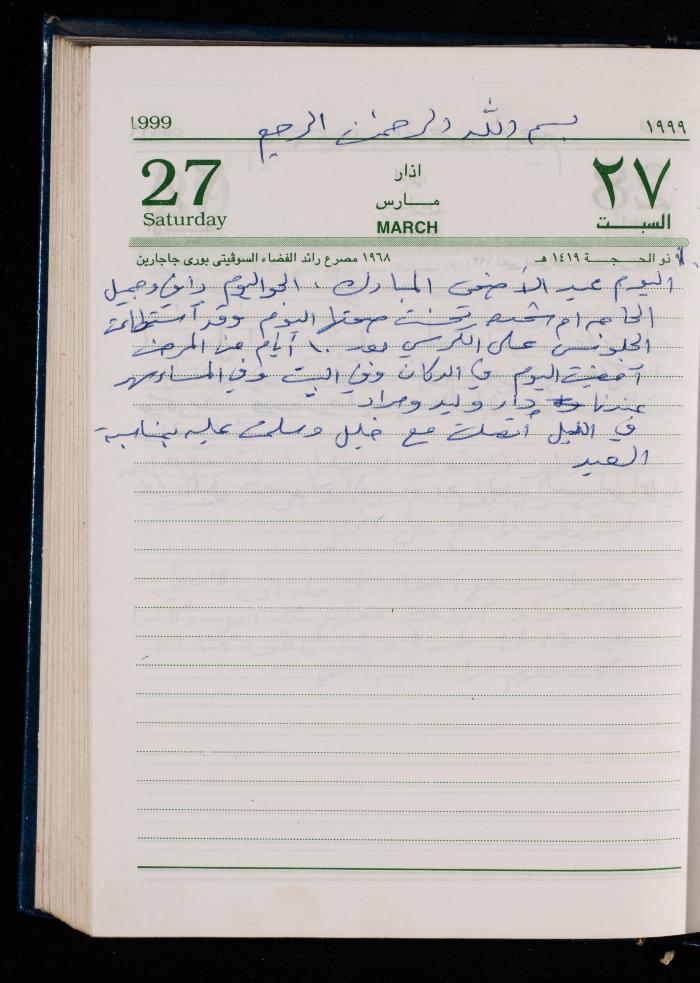 1999 بسم الله الرحمن الرحيم ١٩٩٩
27 اذار ٢٧
Saturday مـــارس السبــت
MARCH
١٩٦٨ مصرع رائد الفضاء السوڤيتى بورى جاجارين ٩ ذو الحــجــــة ١٤١٩ هـ
اليوم عيد الأضحى المبارك ، الجو اليوم رايق وجميل
الحاجه ام شحده تحسنت صحتها اليوم وقد أستطاعت
الجلوس على الكرسي بعد ١٠ أيام من المرض
أمضيت اليوم في الدكان وفي البيت وفي المساء سهر
عندنا دار وليد ومراد
في الليل أتصلت مع خليل وسلمت عليه بمناسبة
العيد